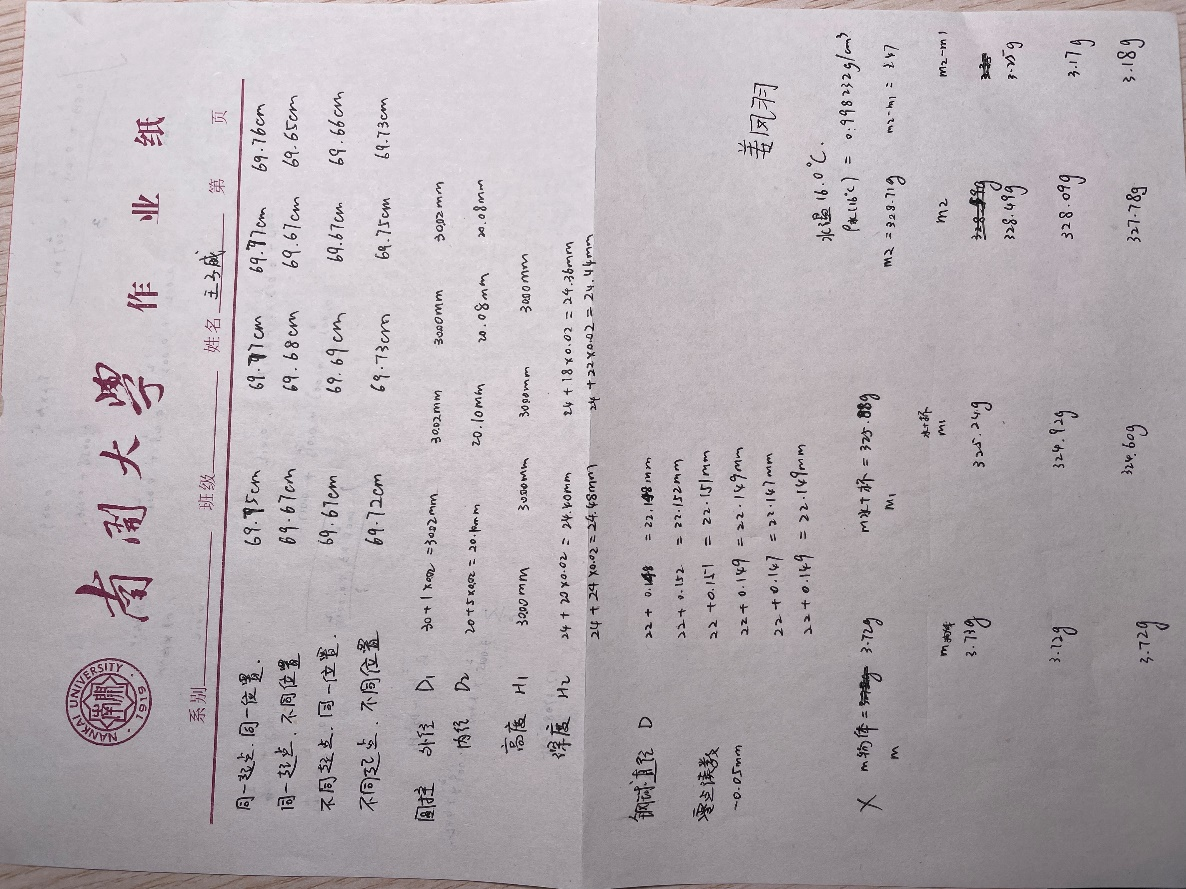 南開大學 作业纸
NANKAI UNIVERSITY
1919
系别 班级 姓名 王子威 第 页
同一起点.同一位置. 69.75cm 69.77cm 69.77cm 69.76cm
同一起点.不同位置 69.67cm 69.68cm 69.67cm 69.65cm
不同起点.同一位置. 69.67cm 69.69cm 69.67cm 69.66cm
不同起点.不同位置 69.72cm 69.73cm 69.75cm 69.73cm
圆柱 外径 D1 30+1×0.02=30.02mm 30.02mm 30.00mm 30.02mm
内径 D2 20+5×0.02=20.10mm 20.10mm 20.08mm 20.08mm
高度 H1 30.00mm 30.00mm 30.00mm 30.00mm
深度 H2 24+20×0.02=24.40mm 24+18×0.02=24.36mm
24+24×0.02=24.48mm 24+22×0.02=24.44mm
钢球直径 D 22+0.148=22.148mm
22+0.152=22.152mm
零点读数 22+0.151=22.151mm
-0.05mm 22+0.149=22.149mm
22+0.147=22.147mm
22+0.149=22.149mm
姜凤羽
水温16.0℃.
ρ水(16℃)=0.998232g/cm³
X m物体=3.72g m水+杯=325.88g m2=328.71g m2-m1=2.47
m m1
m物体 水+杯 m1 m2 m2-m1
3.73g 325.24g 328.49g 3.25g
3.72g 324.92g 328.09g 3.17g
3.72g 324.60g 327.78g 3.18g